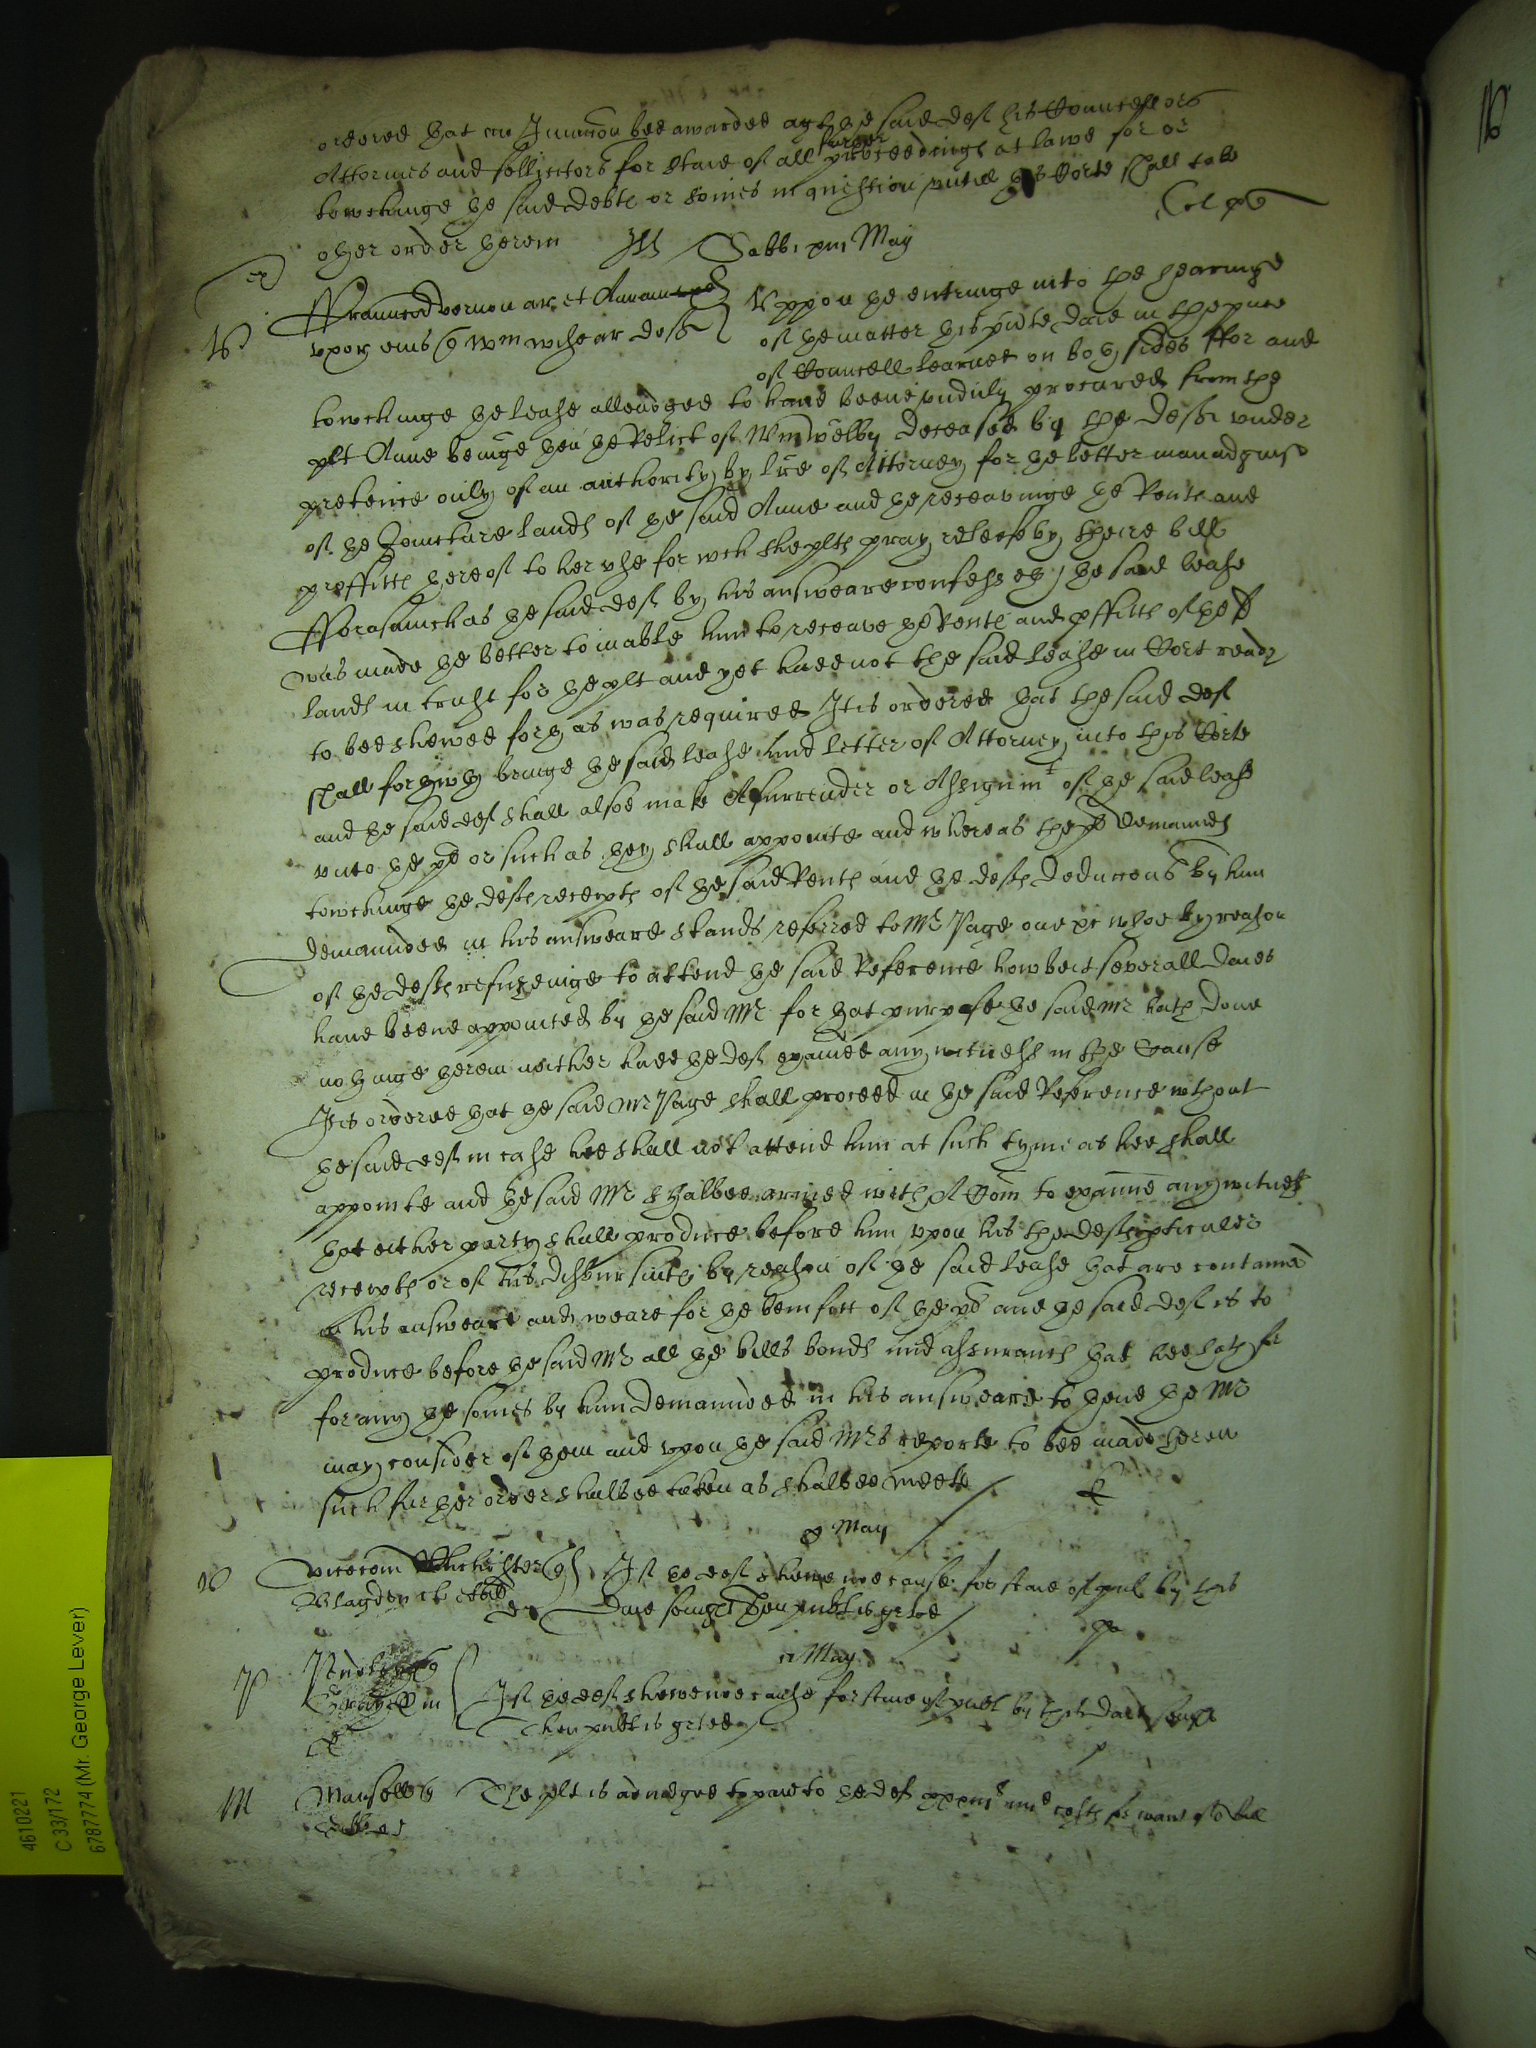 ordered that an Iniunccon bee awarded agt the said deft his Councellors
Attornies and sollicitors for staie of all further proceedings at lawe for or
towchinge the said debte or somes in question vntill this Corte shall take
other order therein
Sabbi xiii May
Frauncis Vernon ar et Anna
vxor eius Wm deft
Vppon the entringe into the hearinge
of the matter this pnte daie in the pnce
of Councell learned on both sides ffor and
towchinge the lease alleadged to haue beene vnduly procured from the
plt Anne beinge then the Relict of Wm Welby deceased by the deft vnder
pretence only of an authority by lre of Attorney for the better manadginge
of the Joincture lands of the said Anne and the receavinge the Rents and
proffitts thereof to her vse for wch the plts pray releefe by theire bill
Fforasmuch as the said deft by his answeare confesseth the said lease
was made the better to inable him to receave the Rents and pffitts of the sd
lands in trust for the plt and yet had not the said lease in Cort ready
to bee shewed forth as was required It is ordered that the said deft
shall forthwth bringe the said lease and letter of Attorney into this Corte
and the said deft shall alsoe make A surrender or Assignmt of the said lease
vnto the plt or such as they shall appointe and whereas the plts demaunds
towchinge the defts receipts of the said Rents and the defts deduccons by him
demaunded in his answeare stands referred to Mr Page one &c whoe by reason
of the defts refuzeinge to attend the said Reference howbeit severall daies
haue beene appointed by the said Mr for that purpose the said Mr hath done
nothinge therein neither hath the deft exaied any witness in the Cause
It is ordered that the said Mr Page shall proceed in the said Reference wthout
the said deft in case hee shall not attend him at such tyme as hee shall
appointe and the said Mr shalbee armed with A Com to examine any witness
that either party shall produce before him vpon his the defts pticuler
receipts or of his disbursmts by reason of the said lease that are contained
in his answeare and weare for the benifitt of the plt and the said deft is to
produce before the said Mr all the bills bonds and assurances that hee hath
for any the somes by him demaunded in his answeare to thend the Mr
may consider of them and vpon the said Mrs reporte to bee made therein
such further order shalbee taken as shalbee meete
May
vicecom
Blagden
If the deft shewe noe cause for staie of publ by this
daie sennight then publ is grted
May
If the deft shewe noe cause for staie of publ by this daie
Then publ is grted
Mansell
The plt is adiudged to paie to the deft costs for want of A bill
4610221
C 33/172
6787774 (Mr. George Lever)